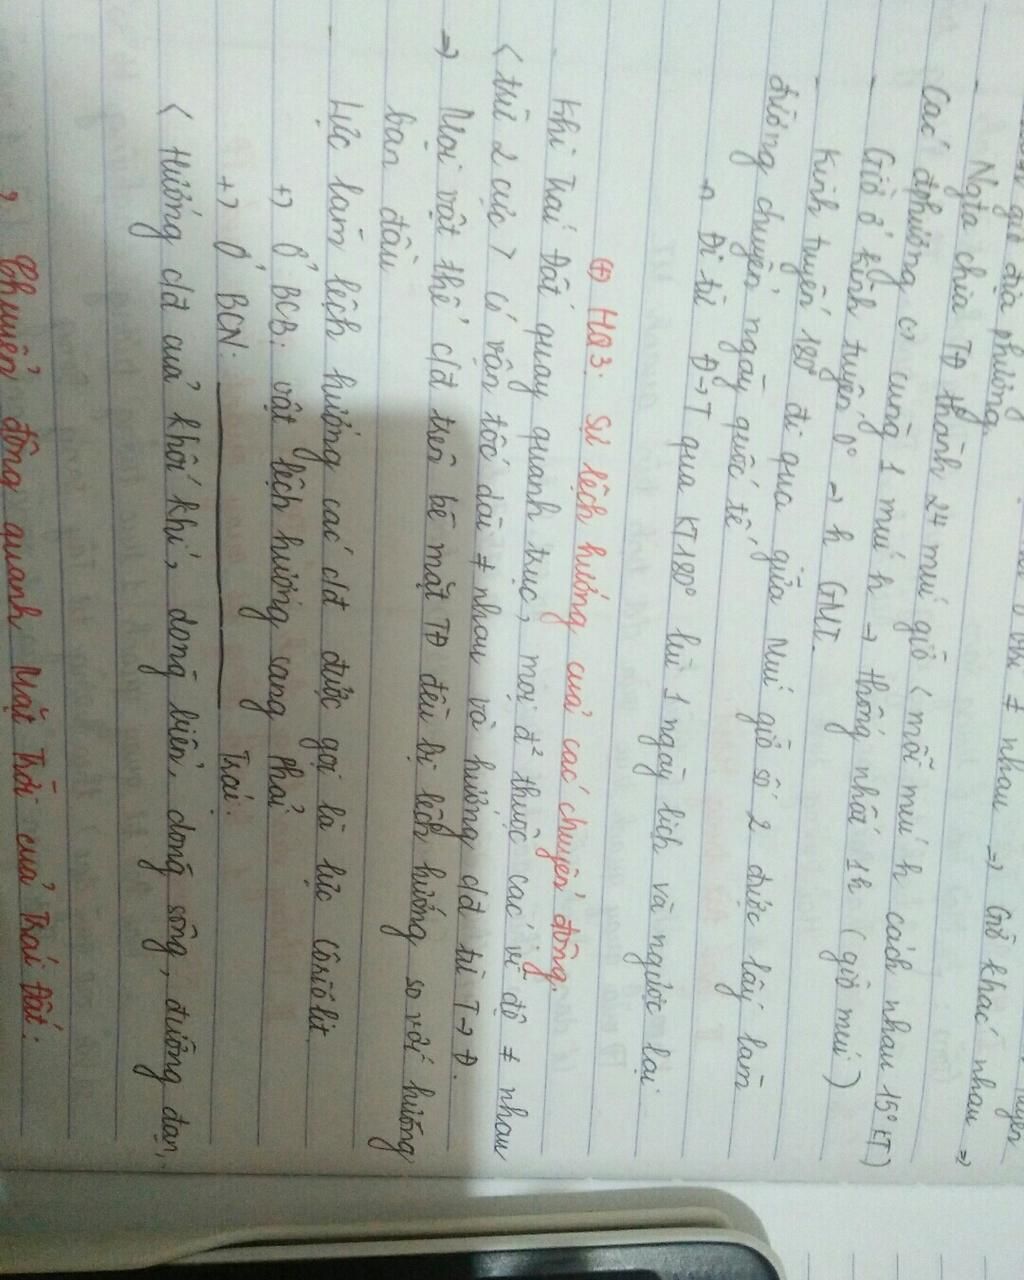 giờ địa phương.
≠ nhau ⇒ Giờ khác nhau ⇒
- Ngta chia TĐ thành 24 múi giờ (mỗi múi h cách nhau 15° KT)
Các đphương có cùng 1 múi h → thống nhất 1h (giờ múi)
- Giờ ở kinh tuyến 0° → h GMT.
- Kinh tuyến 180° đi qua giữa múi giờ số 12 được lấy làm
đường chuyển ngày quốc tế
→ Đi từ Đ→T qua KT 180° lùi 1 ngày lịch và ngược lại
(+) HQ3. Sự lệch hướng của các chuyển động.
- Khi Trái Đất quay quanh trục, mọi đ² thuộc các vĩ độ ≠ nhau
(trừ 2 cực) có vận tốc dài ≠ nhau và hướng c/đ từ T→Đ.
⇒ Mọi vật thể c/đ trên bề mặt TĐ đều bị lệch hướng so với hướng
ban đầu
- Lực làm lệch hướng các c/đ được gọi là lực côriôlit
+) Ở BCB: vật lệch hướng sang phải
+) Ở BCN: Trái.
( Hướng c/đ của khối khí, dòng biển, dòng sông, đường đạn,
Chuyển động quanh Mặt Trời của Trái Đất: